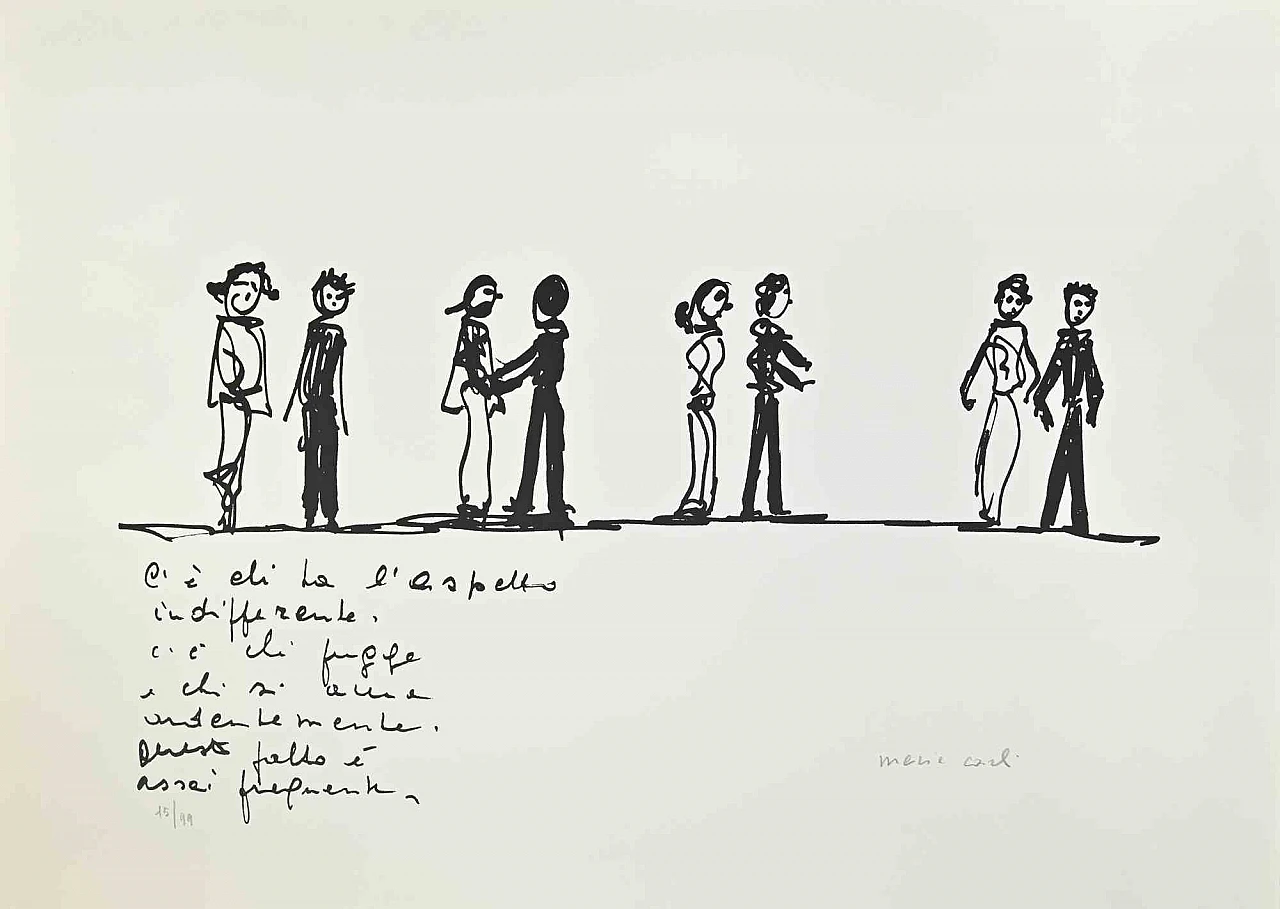 C'è chi ha l'aspetto
indifferente.
c'è chi fugge
e chi si ama
ardentemente.
Questo fatto è
assai frequente.
15/99